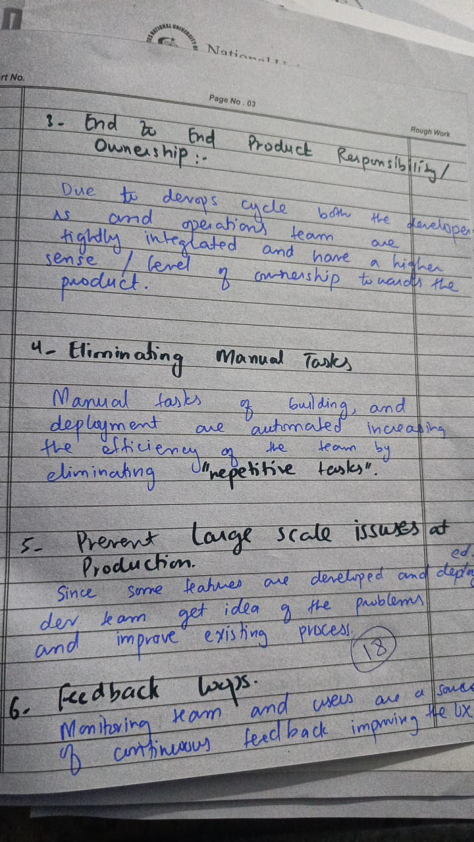 National
rt No.
Page No. 03
Rough Work
3- End to End Product Responsibility/
Ownership :-
Due to devops cycle both the develope
rs and operations team are
tightly integrated and have a higher
sense / level of ownership towards the
product.
4- Eliminating Manual Tasks
Manual tasks of building, and
deployment are automated increasing
the efficiency of the team by
eliminating "repetitive tasks".
5- Prevent Large scale issues at
Production.
Since some features are developed and deploy
ed.
dev team get idea of the problems
and improve existing process.
18
6- Feedback loops.
Monitoring team and users are a
of continuous feedback improving the UX